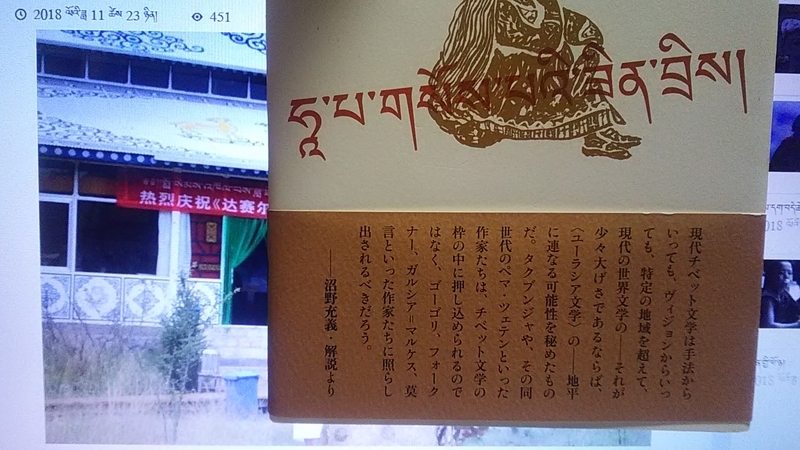 2018 ལོའི་ཟླ་ 11 ཚེས་ 23 ཉིན།
451
热烈庆祝《达赛尔
ཧཱ་པ་གསོས་པའི་ཟིན་བྲིས།
現代チベット文学は手法から
いっても、ヴィジョンからいっ
ても、特定の地域を超えて、
現代の世界文学の――それが
少々大げさであるならば、
〈ユーラシア文学〉の――地平
に連なる可能性を秘めたもの
だ。タクブンジャや、その同
世代のペマ・ツェテンといった
作家たちは、チベット文学の
枠の中に押し込められるので
はなく、ゴーゴリ、フォーク
ナー、ガルシア=マルケス、莫
言といった作家たちに照らし
出されるべきだろう。
――沼野充義・解説より